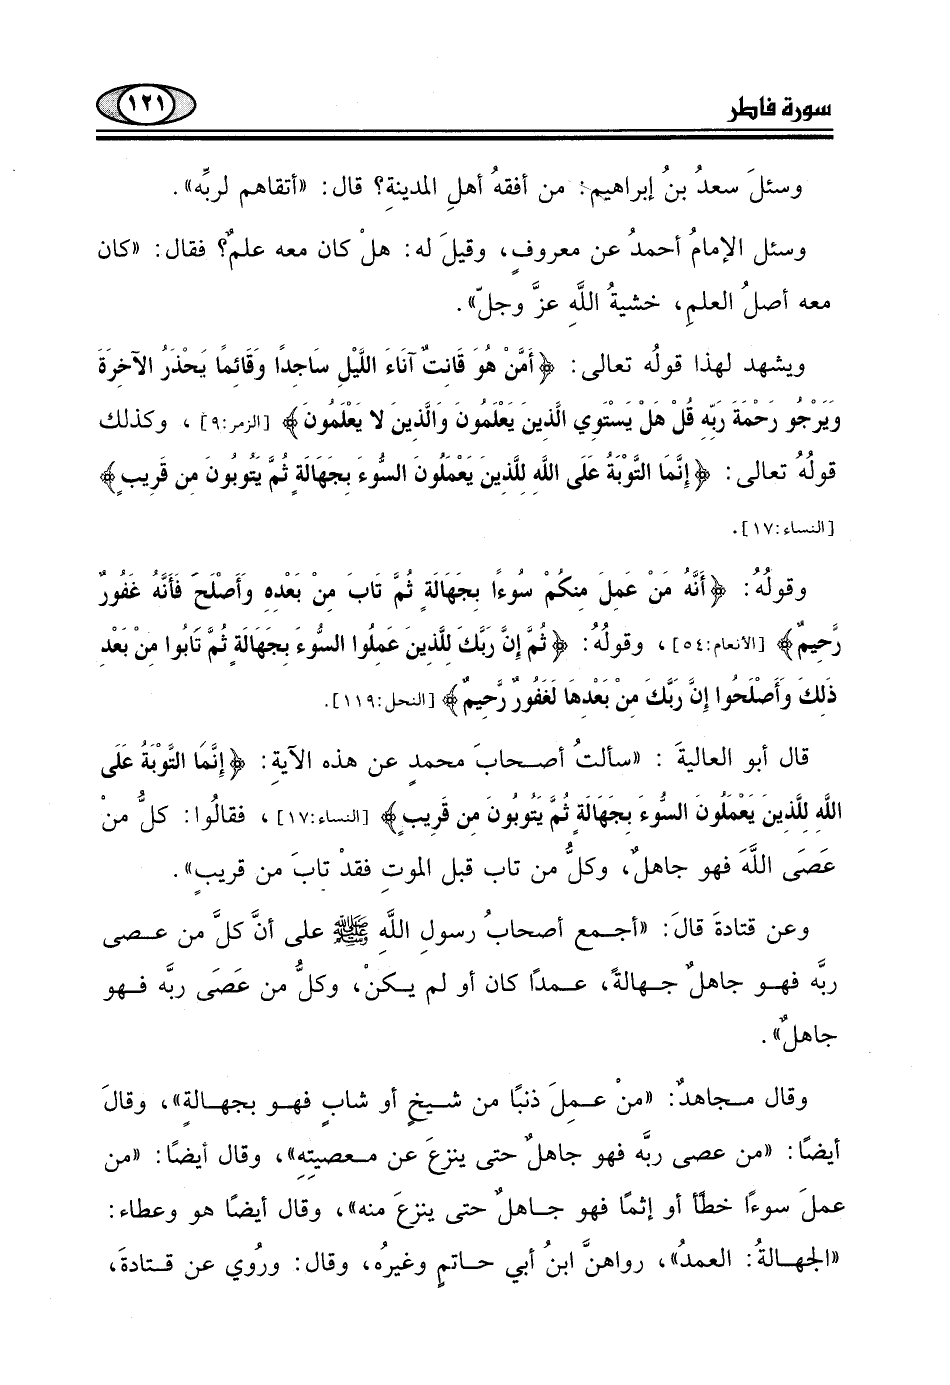 سورة فاطر
١٢١
وسئلَ سعدُ بنُ إبراهيم: من أفقهُ أهلِ المدينةِ؟ قال: «أتقاهم لربِّه».
وسئل الإمامُ أحمدُ عن معروفٍ، وقيلَ له: هلْ كان معه علمٌ؟ فقال: «كان
معه أصلُ العلمِ، خشيةُ اللَّهِ عزَّ وجلّ».
ويشهد لهذا قولُه تعالى: ﴿أَمَّنْ هُوَ قَانِتٌ آنَاءَ اللَّيْلِ سَاجِدًا وَقَائِمًا يَحْذَرُ الآخِرَةَ
وَيَرْجُو رَحْمَةَ رَبِّهِ قُلْ هَلْ يَسْتَوِي الَّذِينَ يَعْلَمُونَ وَالَّذِينَ لا يَعْلَمُونَ﴾ [الزمر:٩]، وكذلك
قولُهُ تعالى: ﴿إِنَّمَا التَّوْبَةُ عَلَى اللَّهِ لِلَّذِينَ يَعْمَلُونَ السُّوءَ بِجَهَالَةٍ ثُمَّ يَتُوبُونَ مِن قَرِيبٍ﴾
[النساء:١٧].
وقولُهُ: ﴿أَنَّهُ مَنْ عَمِلَ مِنكُمْ سُوءًا بِجَهَالَةٍ ثُمَّ تَابَ مِنْ بَعْدِهِ وَأَصْلَحَ فَأَنَّهُ غَفُورٌ
رَّحِيمٌ﴾ [الأنعام:٥٤]، وقولُهُ: ﴿ثُمَّ إِنَّ رَبَّكَ لِلَّذِينَ عَمِلُوا السُّوءَ بِجَهَالَةٍ ثُمَّ تَابُوا مِنْ بَعْدِ
ذَلِكَ وَأَصْلَحُوا إِنَّ رَبَّكَ مِنْ بَعْدِهَا لَغَفُورٌ رَّحِيمٌ﴾ [النحل:١١٩].
قال أبو العاليةَ : «سألتُ أصحابَ محمدٍ عن هذه الآيةِ: ﴿إِنَّمَا التَّوْبَةُ عَلَى
اللَّهِ لِلَّذِينَ يَعْمَلُونَ السُّوءَ بِجَهَالَةٍ ثُمَّ يَتُوبُونَ مِن قَرِيبٍ﴾ [النساء:١٧]، فقالُوا: كلُّ منْ
عَصَى اللَّهَ فهو جاهلٌ، وكلُّ من تاب قبل الموتِ فقدْ تابَ من قريبٍ».
وعن قتادةَ قالَ: «أجمع أصحابُ رسولِ اللَّهِ ﷺ على أنَّ كلَّ من عصى
ربَّه فهو جاهلٌ جهالةً، عمدًا كان أو لم يكنْ، وكلُّ من عَصَى ربَّه فهو
جاهلٌ».
وقال مجاهدٌ: «منْ عمِلَ ذنبًا من شيخٍ أو شابٍ فهو بجهالةٍ»، وقالَ
أيضًا: «من عصى ربَّه فهو جاهلٌ حتى ينزعَ عن معصيتِهِ»، وقال أيضًا: «من
عملَ سوءًا خطأً أو إثمًا فهو جاهلٌ حتى ينزعَ منه»، وقال أيضًا هو وعطاء:
«الجهالةُ: العمدُ»، رواهنَّ ابنُ أبي حاتمٍ وغيرُه، وقال: ورُوي عن قتادةَ،